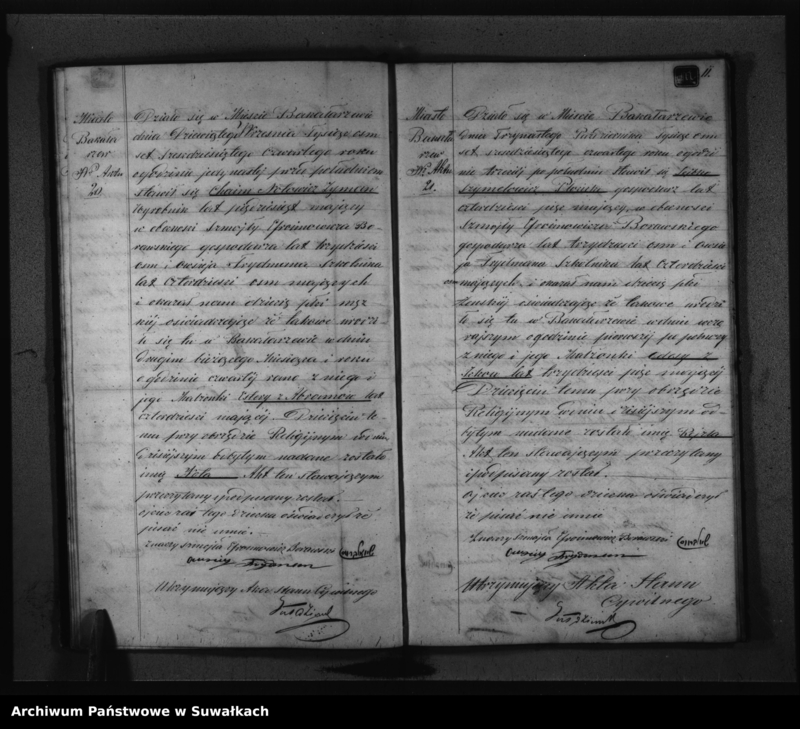 Miasto
Bakałar
zew
No Aktu
20.
Działo się w Mieście Bakałarzewie
dnia Dziewiątego Września tysiąc osm
set sześćdziesiątego czwartego roku
o godzinie jedynastej przed południem
stawił się Chaim
wyrobnik lat pięćdziesiąt mający
w obecności Szmojły
gospodarza lat trzydzieści
osm i Owsieja Frydmana Szkolnika
lat czterdzieści osm mających
i okazał nam dziecię płci męz
kiej oświadczając że takowe urodzi
ło się tu w Bakałarzewie w dniu
drugim bieżącego Miesiąca i roku
o godzinie czwartej rano z niego i
jego Małżonki Estery z Abramów lat
czterdzieści mającej Dziecięciu te
mu przy obrzędzie Religijnym w dniu
dzisiejszym odbytym nadane zostało
imię Akt ten stawającym
przeczytany i podpisany został.
Ojciec zaś tego dziecka oświadczył że
pisać nie umie.
Utrzymujący Akta Stanu Cywilnego
11.
Miasto
Bakała
rzew
No Aktu
21.
Działo się w Mieście Bakałarzewie
Dnia Października tysiąc osm
set sześćdziesiątego czwartego roku o godzi
nie trzeciej po południu stawił się
gospodarz lat
czterdzieści pięć mający, w obecności
Szmojły
gospodarza lat trzydzieści osm i Owsie
ja Frydmana Szkolnika lat czterdzieści
osm mających i okazał nam dziecię płci
żeńskiej oświadczając że takowe urodzi
ło się tu w Bakałarzewie w dniu wczo
rajszym o godzinie pierwszej po północy
z niego i jego Małżonki
lat trzydzieści pięć mającej
Dziecięciu temu przy obrzędzie
Religijnym w dniu dzisiejszym od
bytym nadane zostało imię
Akt ten stawającym przeczytany
i podpisany został.
Ojciec zaś tego dziecka oświadczył
że pisać nie umie
Utrzymujący Akta Stanu
Cywilnego
Archiwum Państwowe w Suwałkach